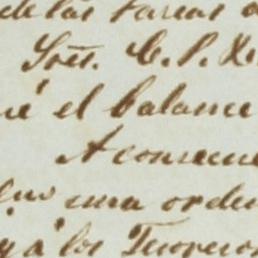 de las tareas
Sres. C. P.
el balance
A consecue
una orden
y á los Tenores